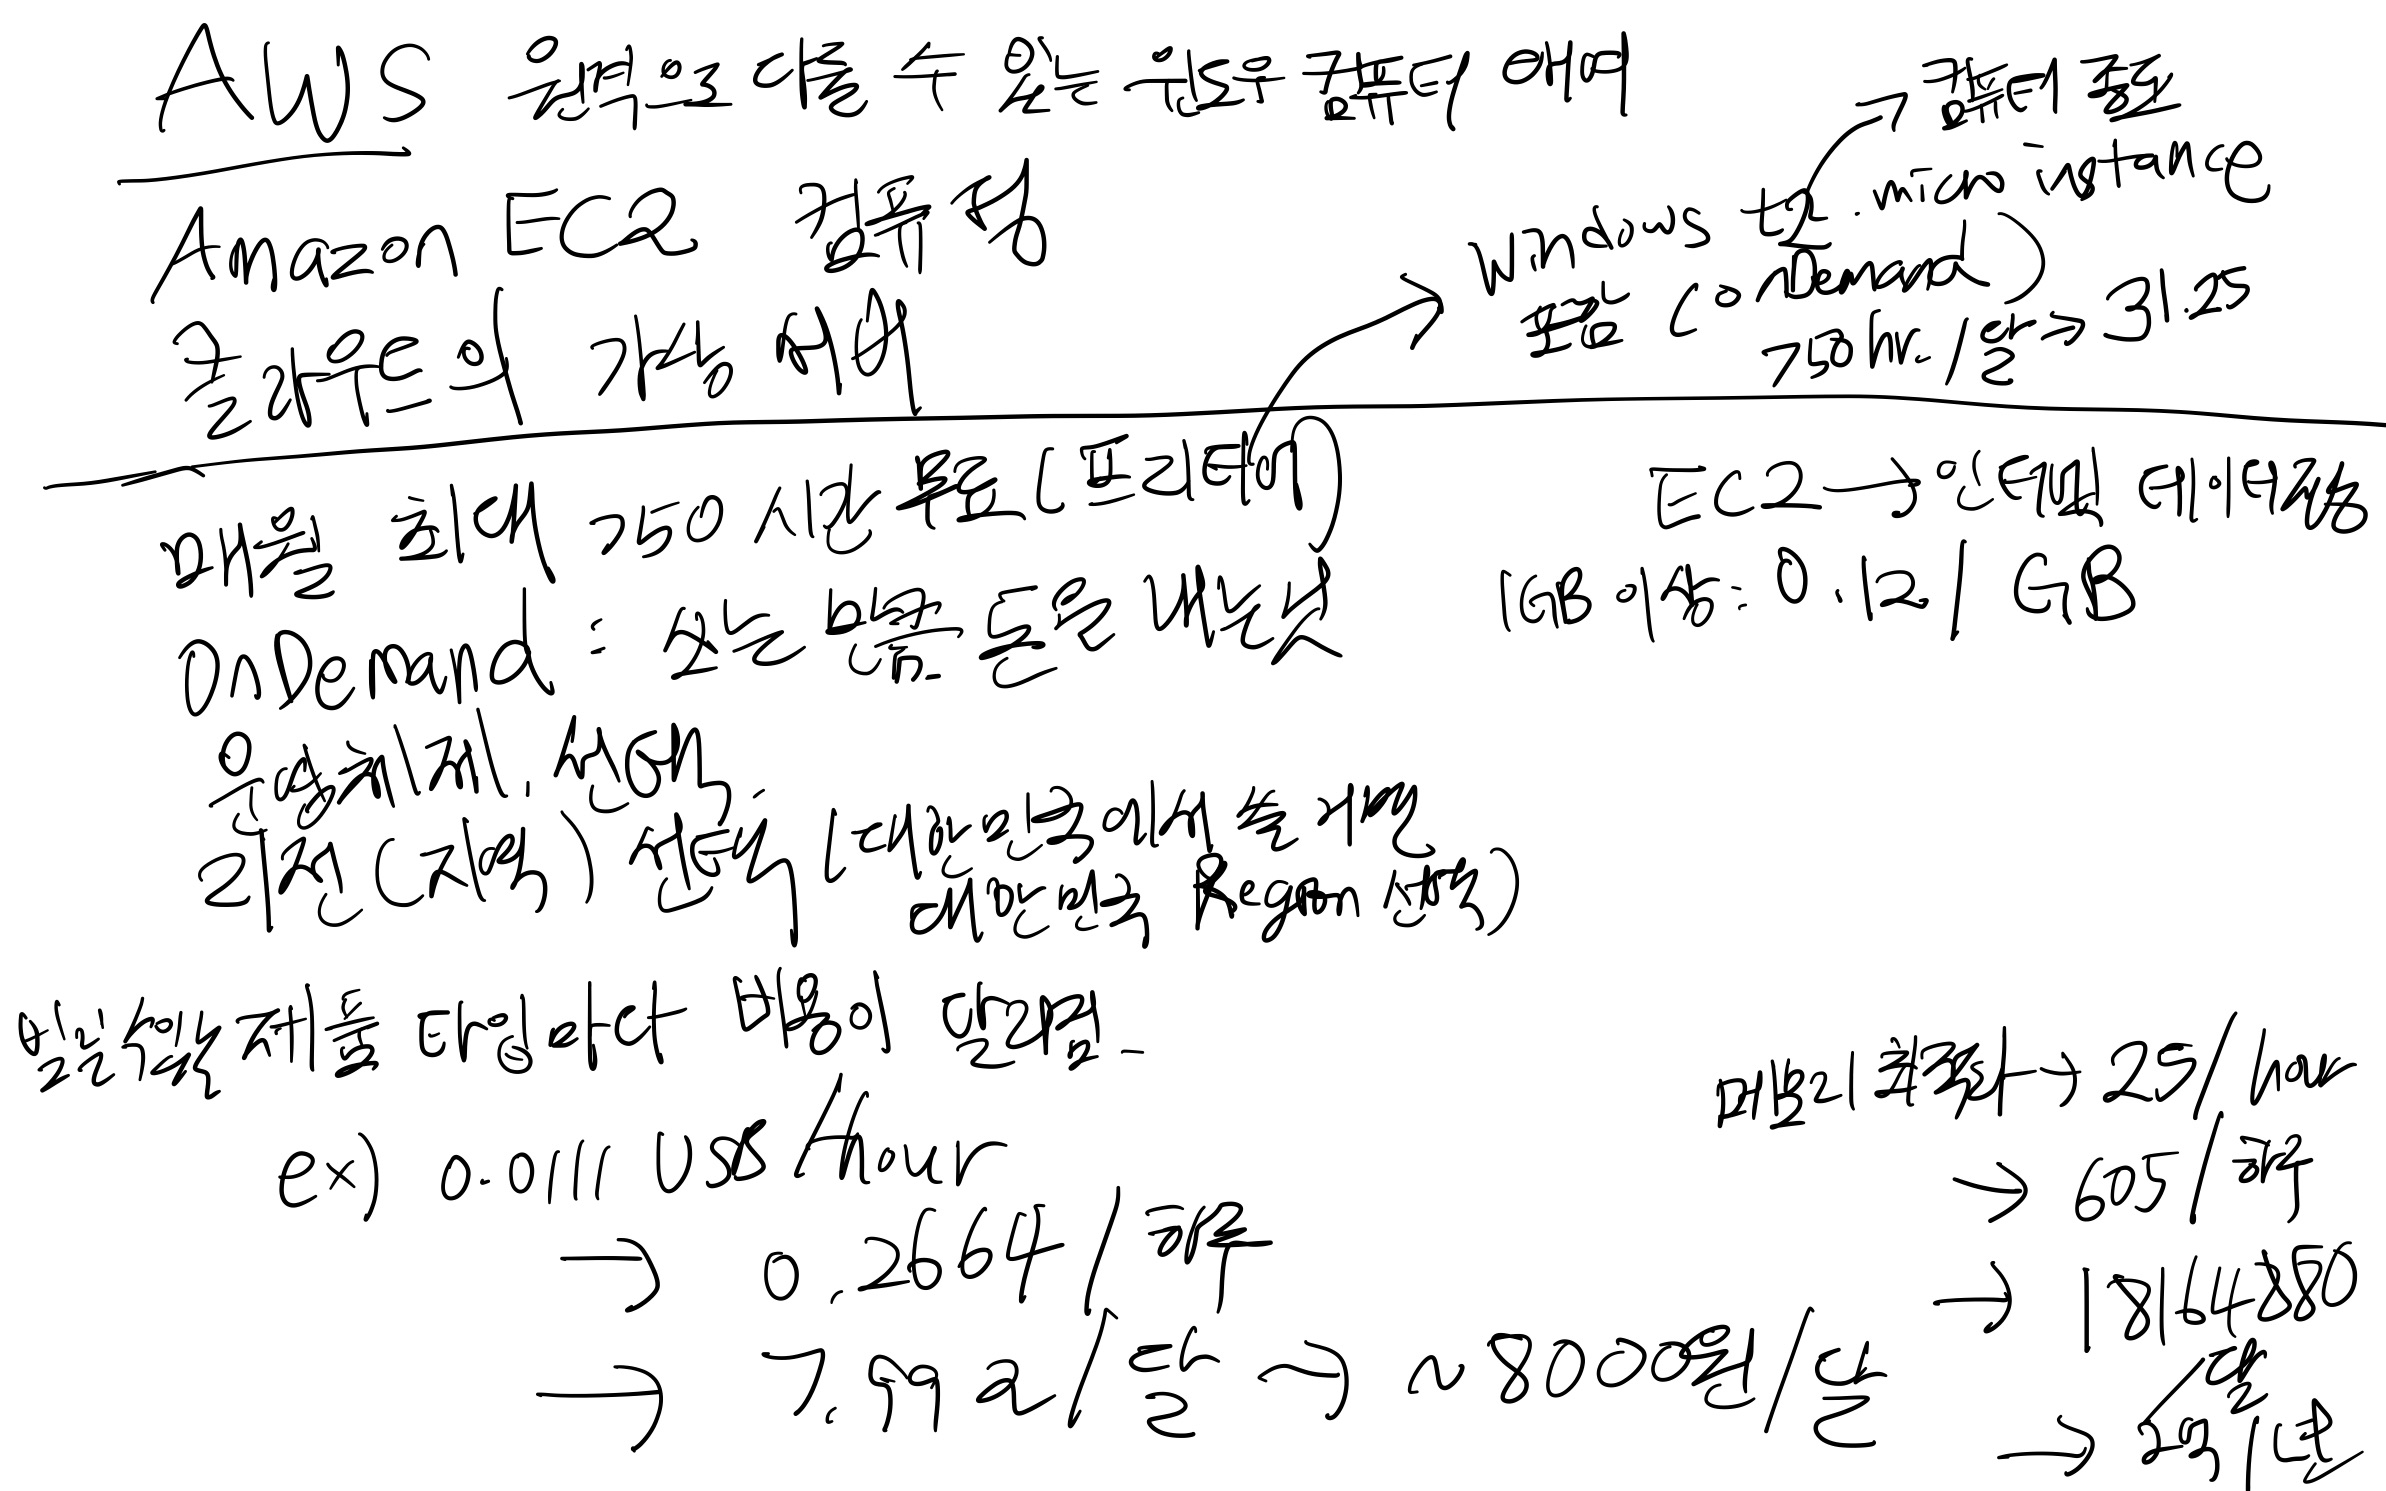 AWS 원격으로 다룰 수 있는 윈도우 컴퓨터 대여
Amazon EC2 컴퓨팅
클라우드의 가상 서버
컴퓨터 종류
Windows t2.micro instance
플랜 (onDemand)
750hr./월 → 31.25
매월 최대 750시간 무료 (프리티어)
OnDemand : 쓰는 만큼 돈을 내는 것
운영체제 선택
리전(지역) 선택 (대한민국에서 쓸거면
대한민국 Region 선택)
EC2 → 인터넷 데이터 전송
1GB 이상: 0.12 / GB
컴퓨터 타입마다 비용이 달라짐.
ex) 0.0111 US$/hour
→ 0.2664/하루
→ 7.992/달 → ~8000원/달
→ 25/hour
→ 605/하루
→ 18164880
/월
→ 2억/년